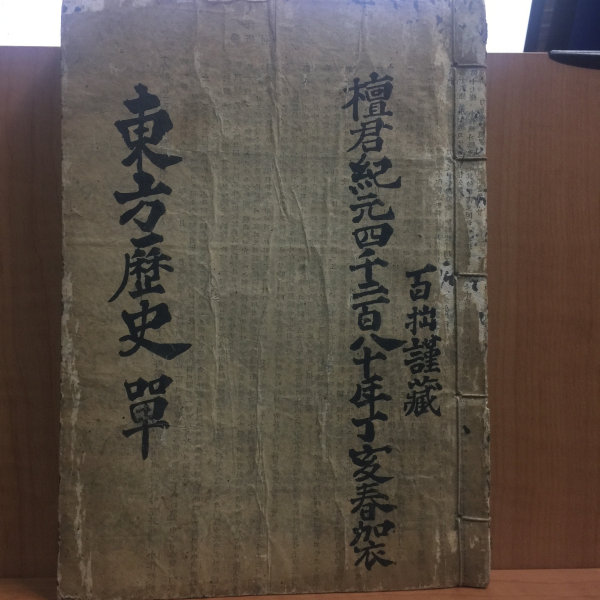 百拙謹藏
檀君紀元四千二百八十年丁亥春袈
東方歷史 單